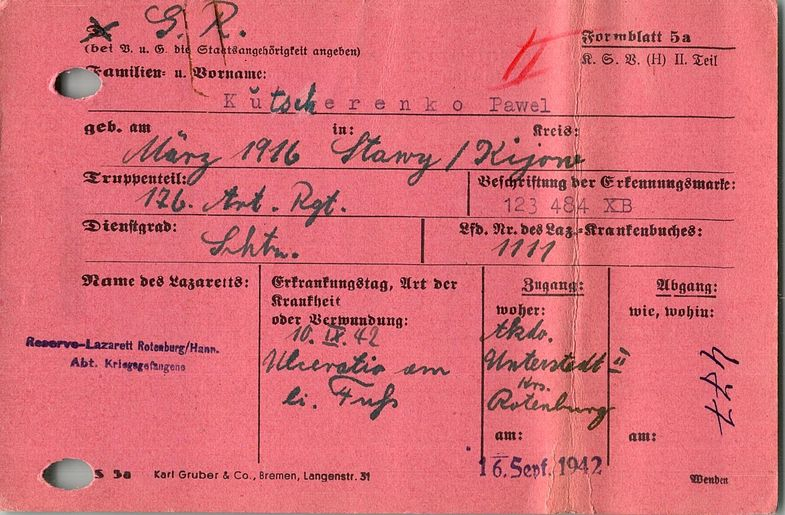 S. R.
(bei V. u. G. die Staatsangehörigkeit angeben)
Formblatt 5a
K. S. V. (H) II. Teil
II
Familien- u. Vorname:
Kutscherenko Pawel
geb. am in: Kreis:
März 1916 Stawy / Kijow
Truppenteil: Beschriftung der Erkennungsmarke:
176. Art. Rgt. 123 484 XB
Dienstgrad: Lfd. Nr. des Laz.-Krankenbuches:
1111
Name des Lazaretts:
Reserve-Lazarett Rotenburg/Hann.
Abt. Kriegsgefangene
Erkrankungstag, Art der
Krankheit
oder Verwundung:
10. IX. 42
Ulceratio am
li. Fuß
Zugang:
woher:
Akdo.
Unterstedt II
Krs.
Rotenburg
am:
16. Sept. 1942
Abgang:
wie, wohin:
477
am:
S 5a Karl Gruber & Co., Bremen, Langenstr. 31
Wenden